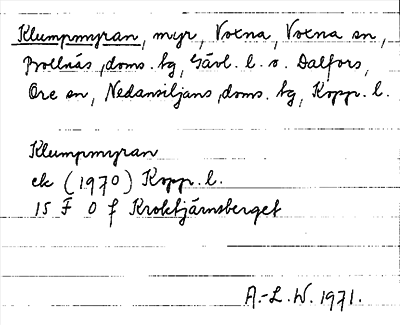 Klumpmyran, myr, Voxna, Voxna sn,
Bollnäs doms. hg, Gävl. l. o. Dalfors,
Ore sn, Nedansiljans doms. hg, Kopp. l.
Klumpmyran
ek (1970) Kopp. l.
15 F 0 f Kroktjärnsberget
A.-L. W. 1971.